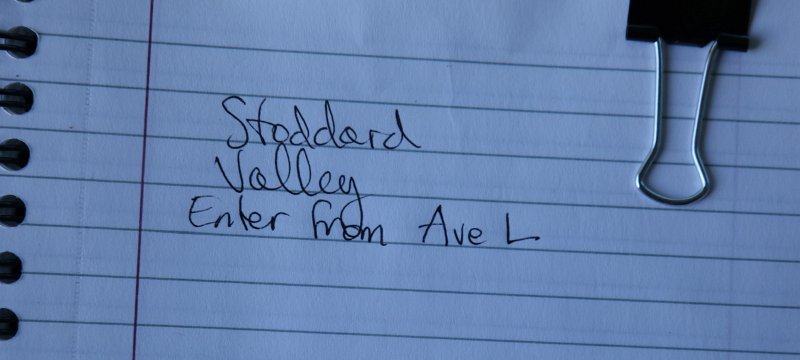 Stoddard
Valley
Enter from Ave L